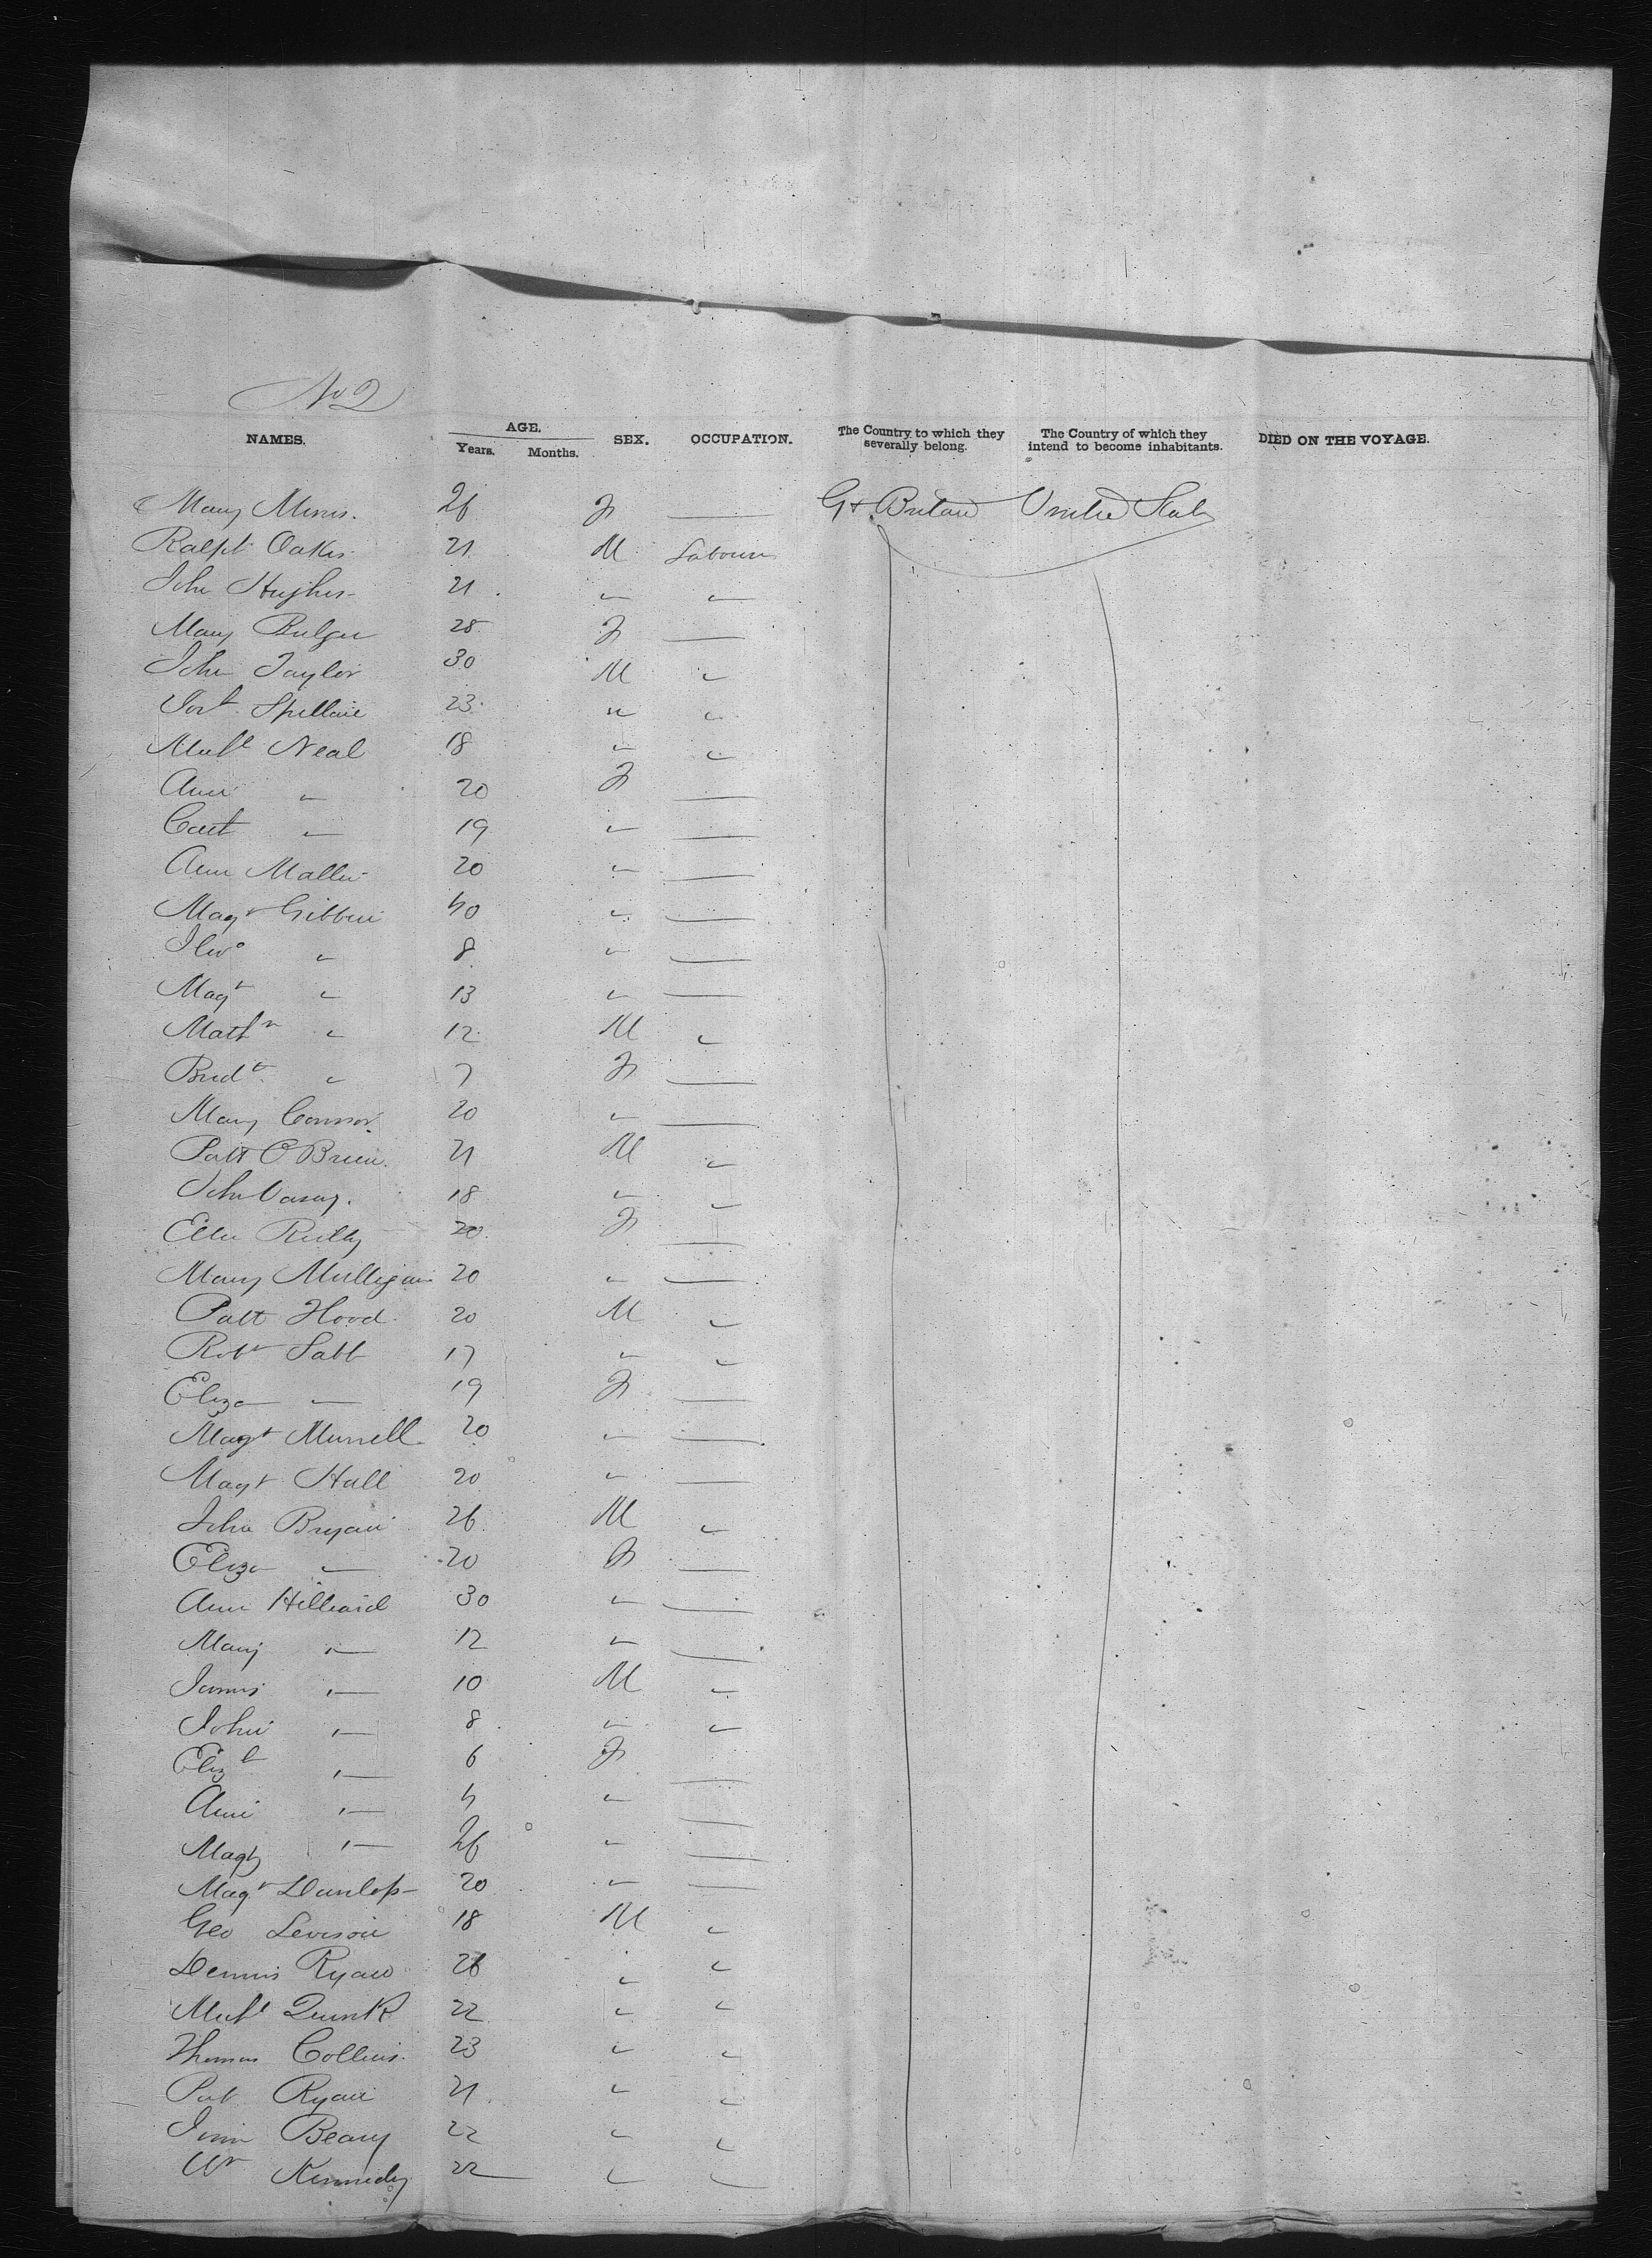 No 2
NAMES. AGE. Years. Months. SEX. OCCUPATION. The Country to which they severally belong. The Country of which they intend to become inhabitants. DIED ON THE VOYAGE.
Mary 26 F —— Gt Britain United States
Ralph Oakes 21 M Labourer
John Hughes 21 " "
Mary Bulger 28 F ——
John Taylor 30 M "
Spillane 23 " "
Michl Neal 18 " "
Ann " 20 F ——
Cath " 19 " ——
Ann 20 " ——
Magt Gibbon 40 " ——
" 8 " ——
Magt " 13 " ——
" 12 M "
Bridt " 7 F ——
Mary Connor 20 " ——
Patt O'Brien 21 M "
John Casey 18 " "
Ellen Reilly 20 F ——
Mary Mulligan 20 " ——
Patt Hood 20 M "
Robt 17 " "
Eliza " 19 F ——
Magt Murrell 20 " ——
Magt Hall 20 " ——
John Bryan 26 M "
Eliza " 20 F ——
Ann Hilliard 30 " ——
Mary " 12 " ——
James " 10 M "
John " 8 " "
Elizt " 6 F ——
Ann " 4 " ——
" 26 " ——
Magt Dunlop 20 " ——
Geo Levison 18 M "
Dennis Ryan " "
Michl 22 " "
Thomas Collins 23 " "
Pat Ryan 21 " "
22 " "
Wm Kennedy 22 " "